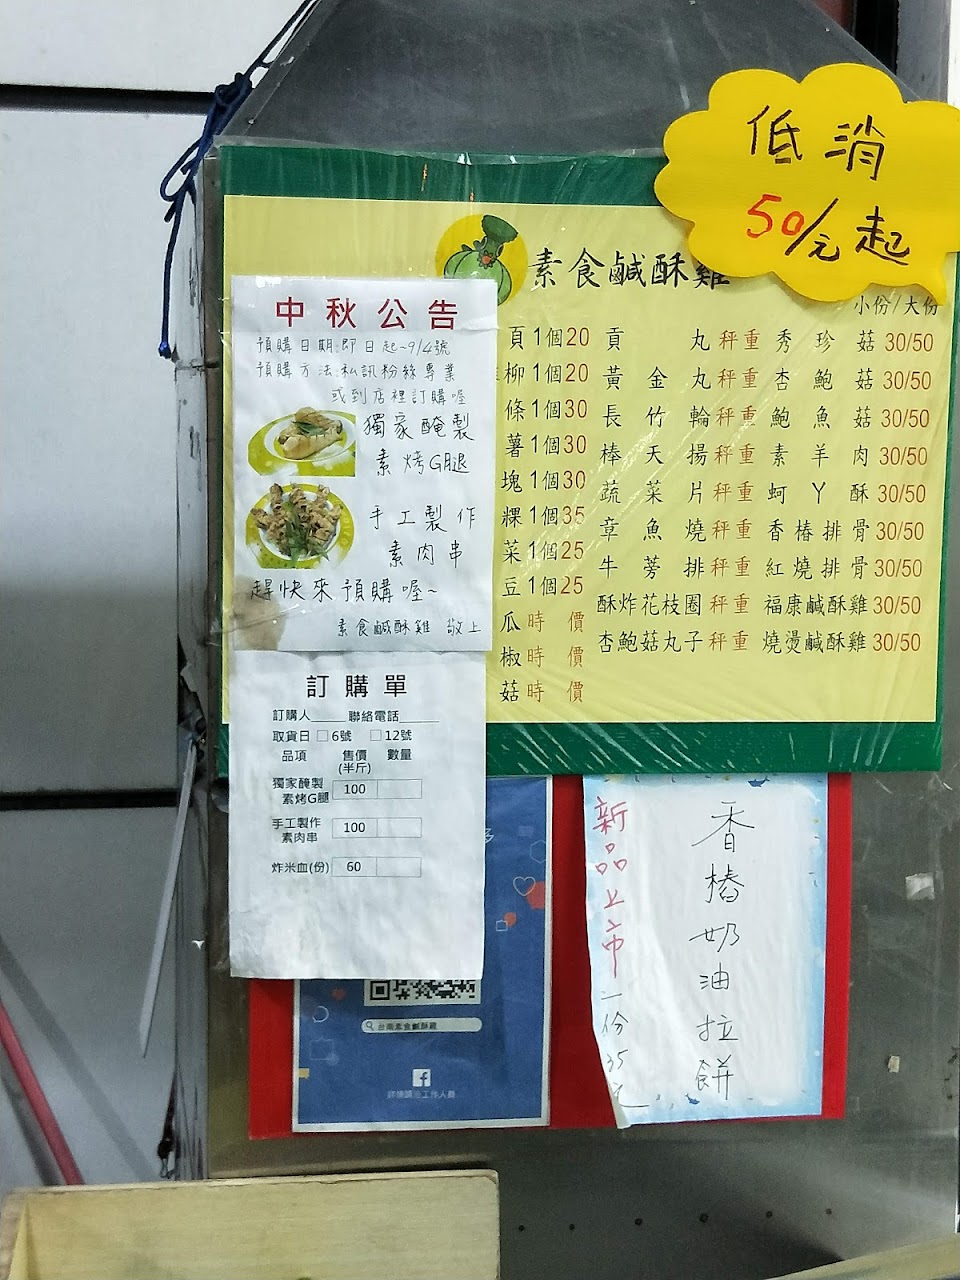 低消
50/元起
素食鹹酥雞
小份/大份
中秋公告
預購日期:即日起~9/4號
預購方法:私訊粉絲專業
或到店裡訂購喔
獨家醃製
素烤G腿
手工製作
素肉串
趕快來預購喔~
素食鹹酥雞 敬上
頁1個20
柳1個20
條1個30
薯1個30
塊1個30
粿1個35
菜1個25
豆1個25
瓜時價
椒時價
菇時價
貢丸秤重
黃金丸秤重
長竹輪秤重
棒天揚秤重
蔬菜片秤重
章魚燒秤重
牛蒡排秤重
酥炸花枝圈秤重
杏鮑菇丸子秤重
秀珍菇30/50
杏鮑菇30/50
鮑魚菇30/50
素羊肉30/50
蚵丫酥30/50
香椿排骨30/50
紅燒排骨30/50
福康鹹酥雞30/50
燒燙鹹酥雞30/50
訂購單
訂購人_____ 聯絡電話_____
取貨日 □6號 □12號
品項 售價 數量
(半斤)
獨家醃製
素烤G腿 100
手工製作
素肉串 100
炸米血(份) 60
多
台南素食鹹酥雞
詳情請洽工作人員
新品上市 一份35元
香椿奶油拉餅